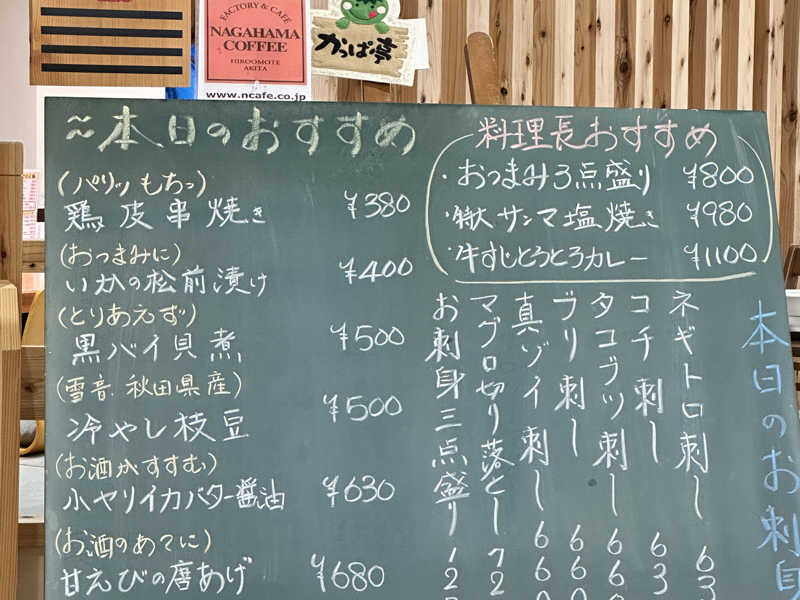 FACTORY & CAFE
NAGAHAMA
COFFEE
HIROOMOTE
AKITA
www.ncafe.co.jp
かっぱ亭
≈本日のおすすめ
(パリッもちっ)
鶏皮串焼き ¥380
(おつまみに)
いかの松前漬け ¥400
(とりあえず)
黒バイ貝煮 ¥500
(雪音.秋田県産)
冷やし枝豆 ¥500
(お酒がすすむ)
小ヤリイカバター醤油 ¥630
(お酒のあてに)
甘えびの唐あげ ¥680
料理長おすすめ
・おつまみ3点盛り ¥800
・特大サンマ塩焼き ¥980
・牛すじとろとろカレー ¥1100
本日のお刺身
ネギトロ刺し 63
コチ刺し 63
タコブツ刺し 66
ブリ刺し 66
真ゾイ刺し 66
マグロ切り落とし 72
お刺身三点盛り 12